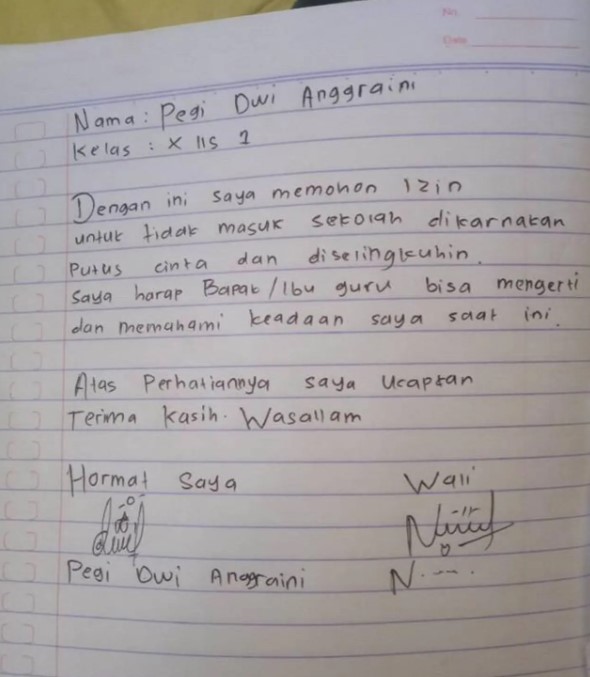 No.
Date
Nama: Pegi Dwi Anggraini
Kelas : X IIS 1
Dengan ini saya memohon Izin
untuk tidak masuk sekolah dikarnakan
Putus cinta dan diselingkuhin.
Saya harap Bapak/Ibu guru bisa mengerti
dan memahami keadaan saya saat ini.
Atas Perhatiannya saya Ucapkan
Terima kasih. Wasallam
Hormat Saya Wali
Pegi Dwi Anggraini N.....